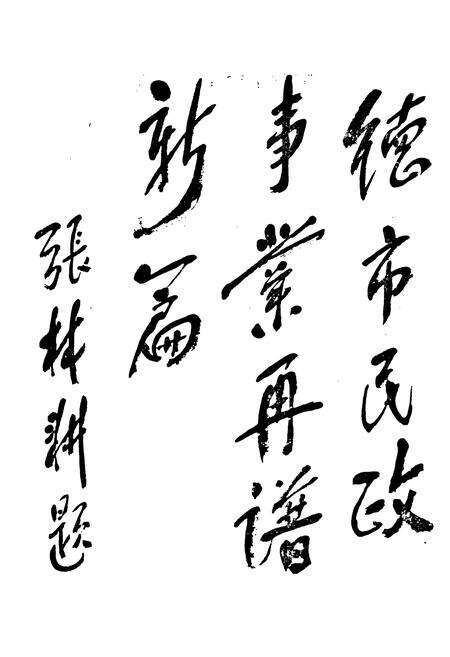 德市民政
事業再譜
新篇
張林耕題